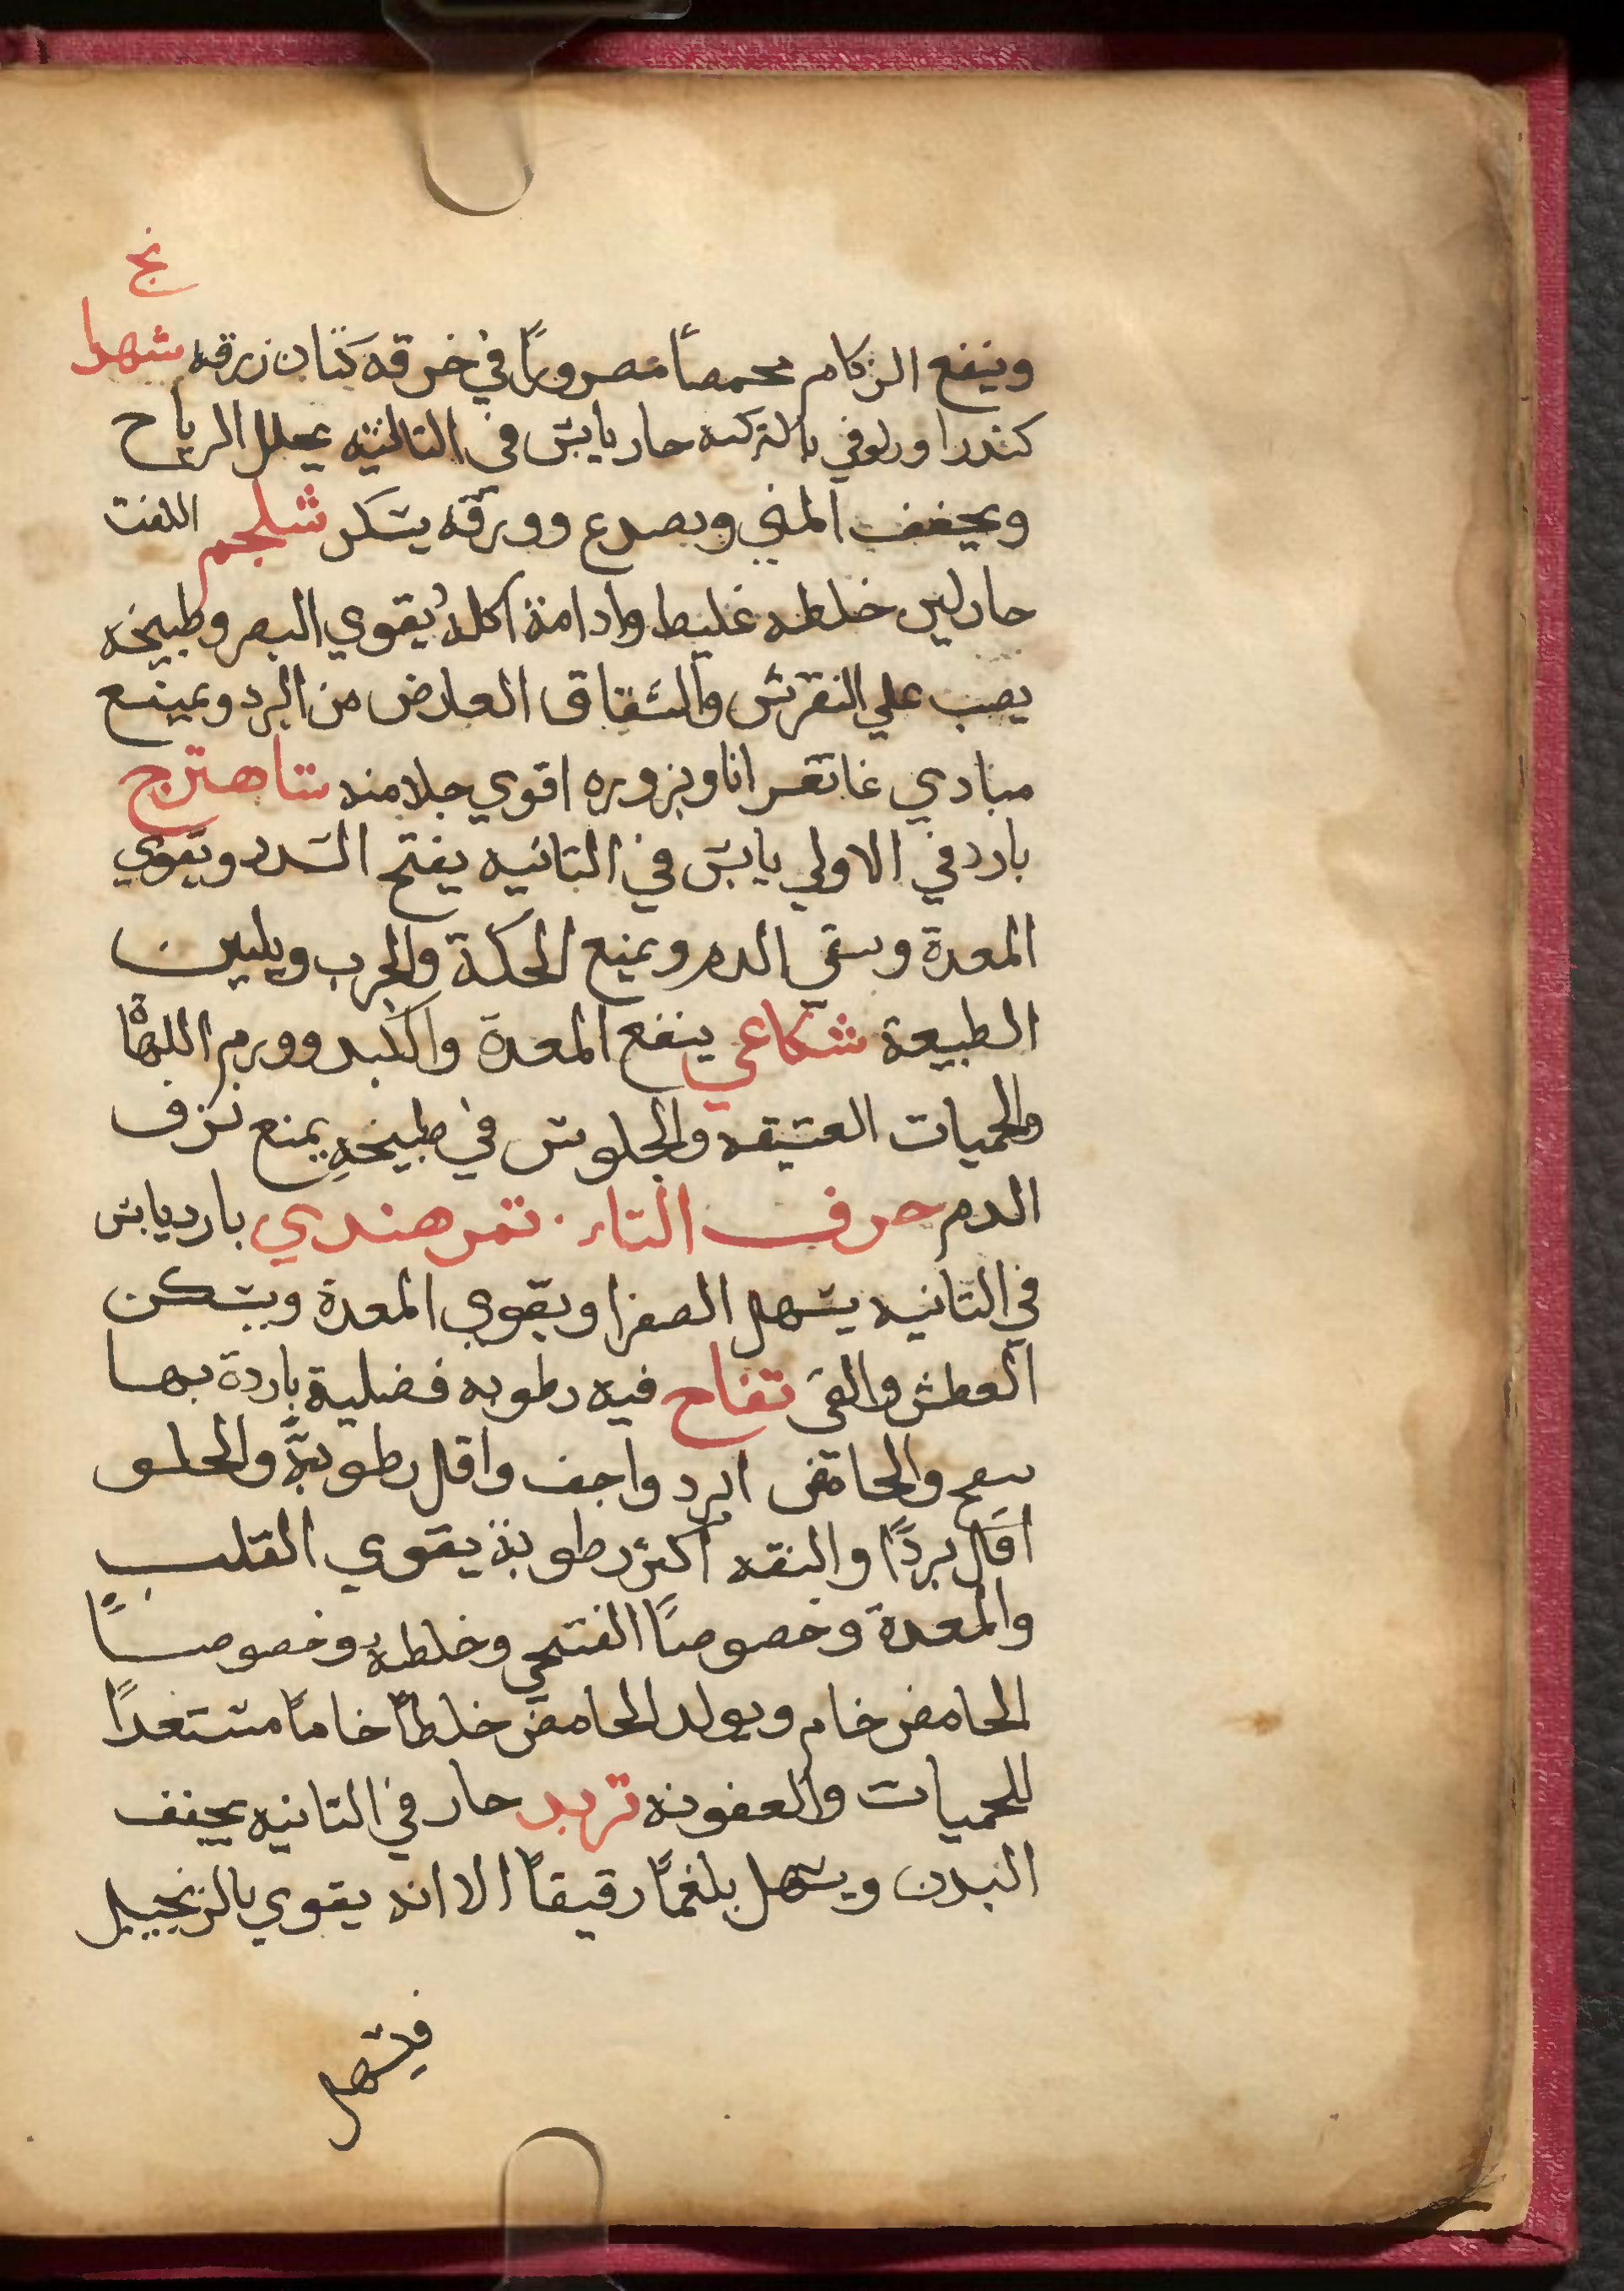 نج
وينفع الزكام محمصاً مصروراً في خرقه كتان زرقه شهدا
كندرا بالتركيه حار يابس في الثالثيه يحلل الرياح
ويجفف المني ويصدع وورقه يسكر شلجم اللفت
حار لين خلطه غليط وادامة اكله يقوي البصر وطبيخه
يصب علي النقرس والشقاق العارض من البرد ويمينع
وبزوره اقوي جلا منه شاهترج
بارد في الاولي يابس في الثانيه يفتح السدد ويقوي
المعدة وينقي الدم ويمنع الحكة والجرب ويليين
الطبيعة شكاعي ينفع المعدة والكبد وورم اللهاة
والحميات العتيقه والجلوس في طبيخهِ يمنع نزف
الدم حرف التاء. تمر هندي بارد يابس
في الثانيه يسهل الصفرا ويقوي المعدة ويسكن
العطش والقي تفاح فيه رطوبه فضلية باردة بها
ينفخ والحامض ابرد واجف واقل رطوبةً والحلو
اقل برداً والتفه اكثر رطوبة يقوي القلب
والمعدة وخصوصاً الفتحي وخلطه وخصوصاً
الحامض خام ويولد الحامض خلطاً خاماً مستعداً
للحميات والعفونه تربد حار في الثانيه يجفف
البدن ويسهل بلغماً رقيقاً الا انه يقوي بالزنجبيل
فيسهل